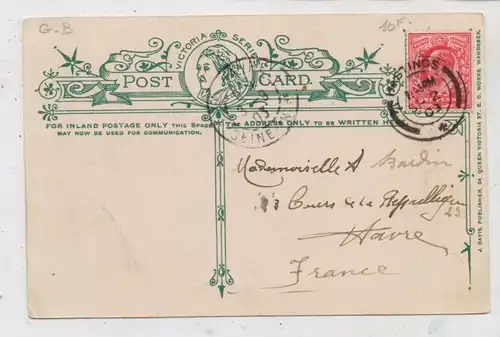 G.B
10F
VICTORIA SERIES
POST CARD.
FOR INLAND POSTAGE ONLY THIS SPACE
MAY NOW BE USED FOR COMMUNICATION.
THE ADDRESS ONLY TO BE WRITTEN HERE
HASTINGS
SEINE
Mademoiselle A Bardin
Cours de la République
Havre
France
J. DAVIS, PUBLISHER, 24, QUEEN VICTORIA ST. E. C. WORKS, WANDSEBK.